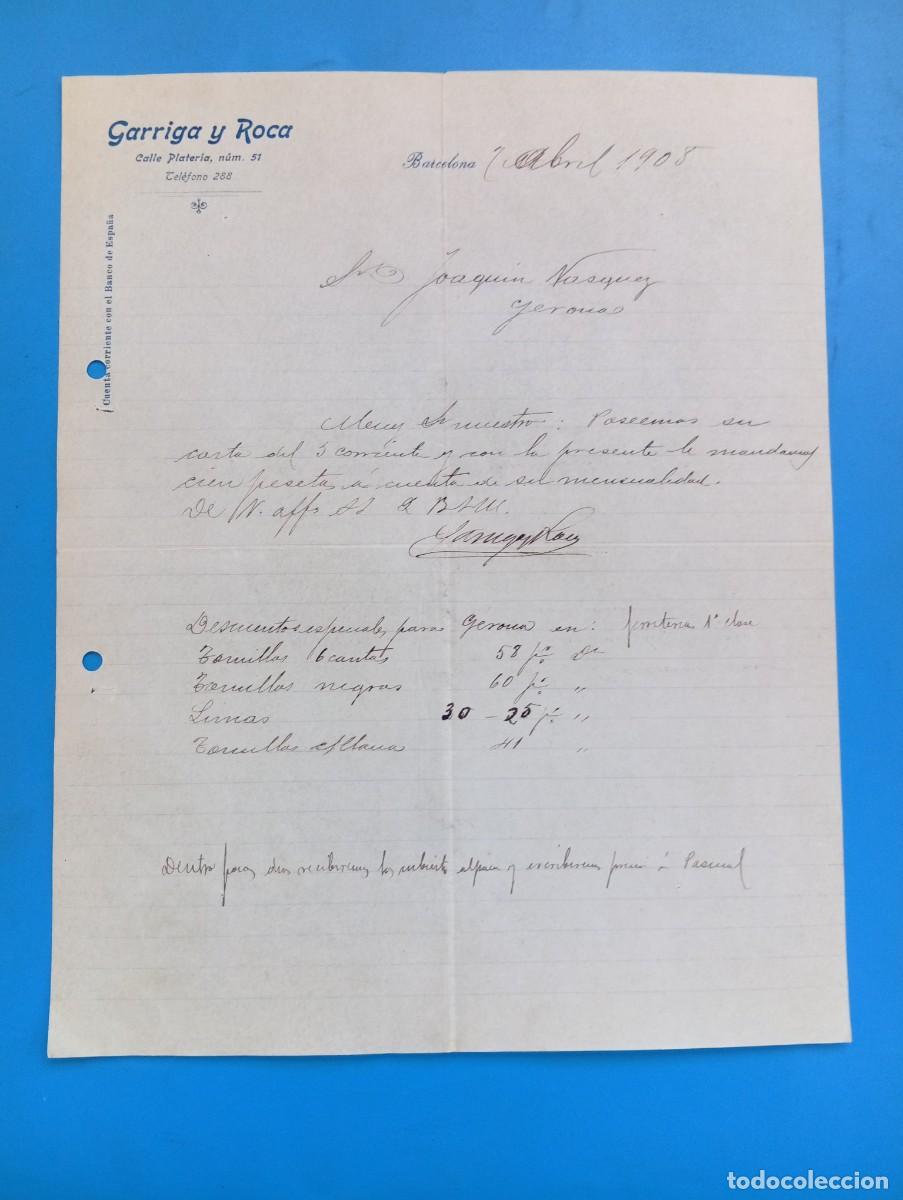 Garriga y Roca
Calle Platería, núm. 51
Teléfono 288
Cuenta corriente con el Banco de España
Barcelona 7 Abril 1908
Sr. D. Joaquin Vasquez
Gerona
Muy Sr nuestro: Poseemos su
carta del 5 corriente y con la presente le mandamos
cien pesetas á cuenta de su mensualidad.
De V. affs SS Q B S M.
Garriga y Roca
Descuentos especiales para Gerona en: 1ª clase
Tornillos 6 cantos 58 p% Dto
Tornillos negros 60 p% "
Limas 30 - 25 p% "
Tornillos 41 "
Dentro pocos dias recibiremos los cubiertos alpaca y escribiremos precio á Pascual
todocoleccion